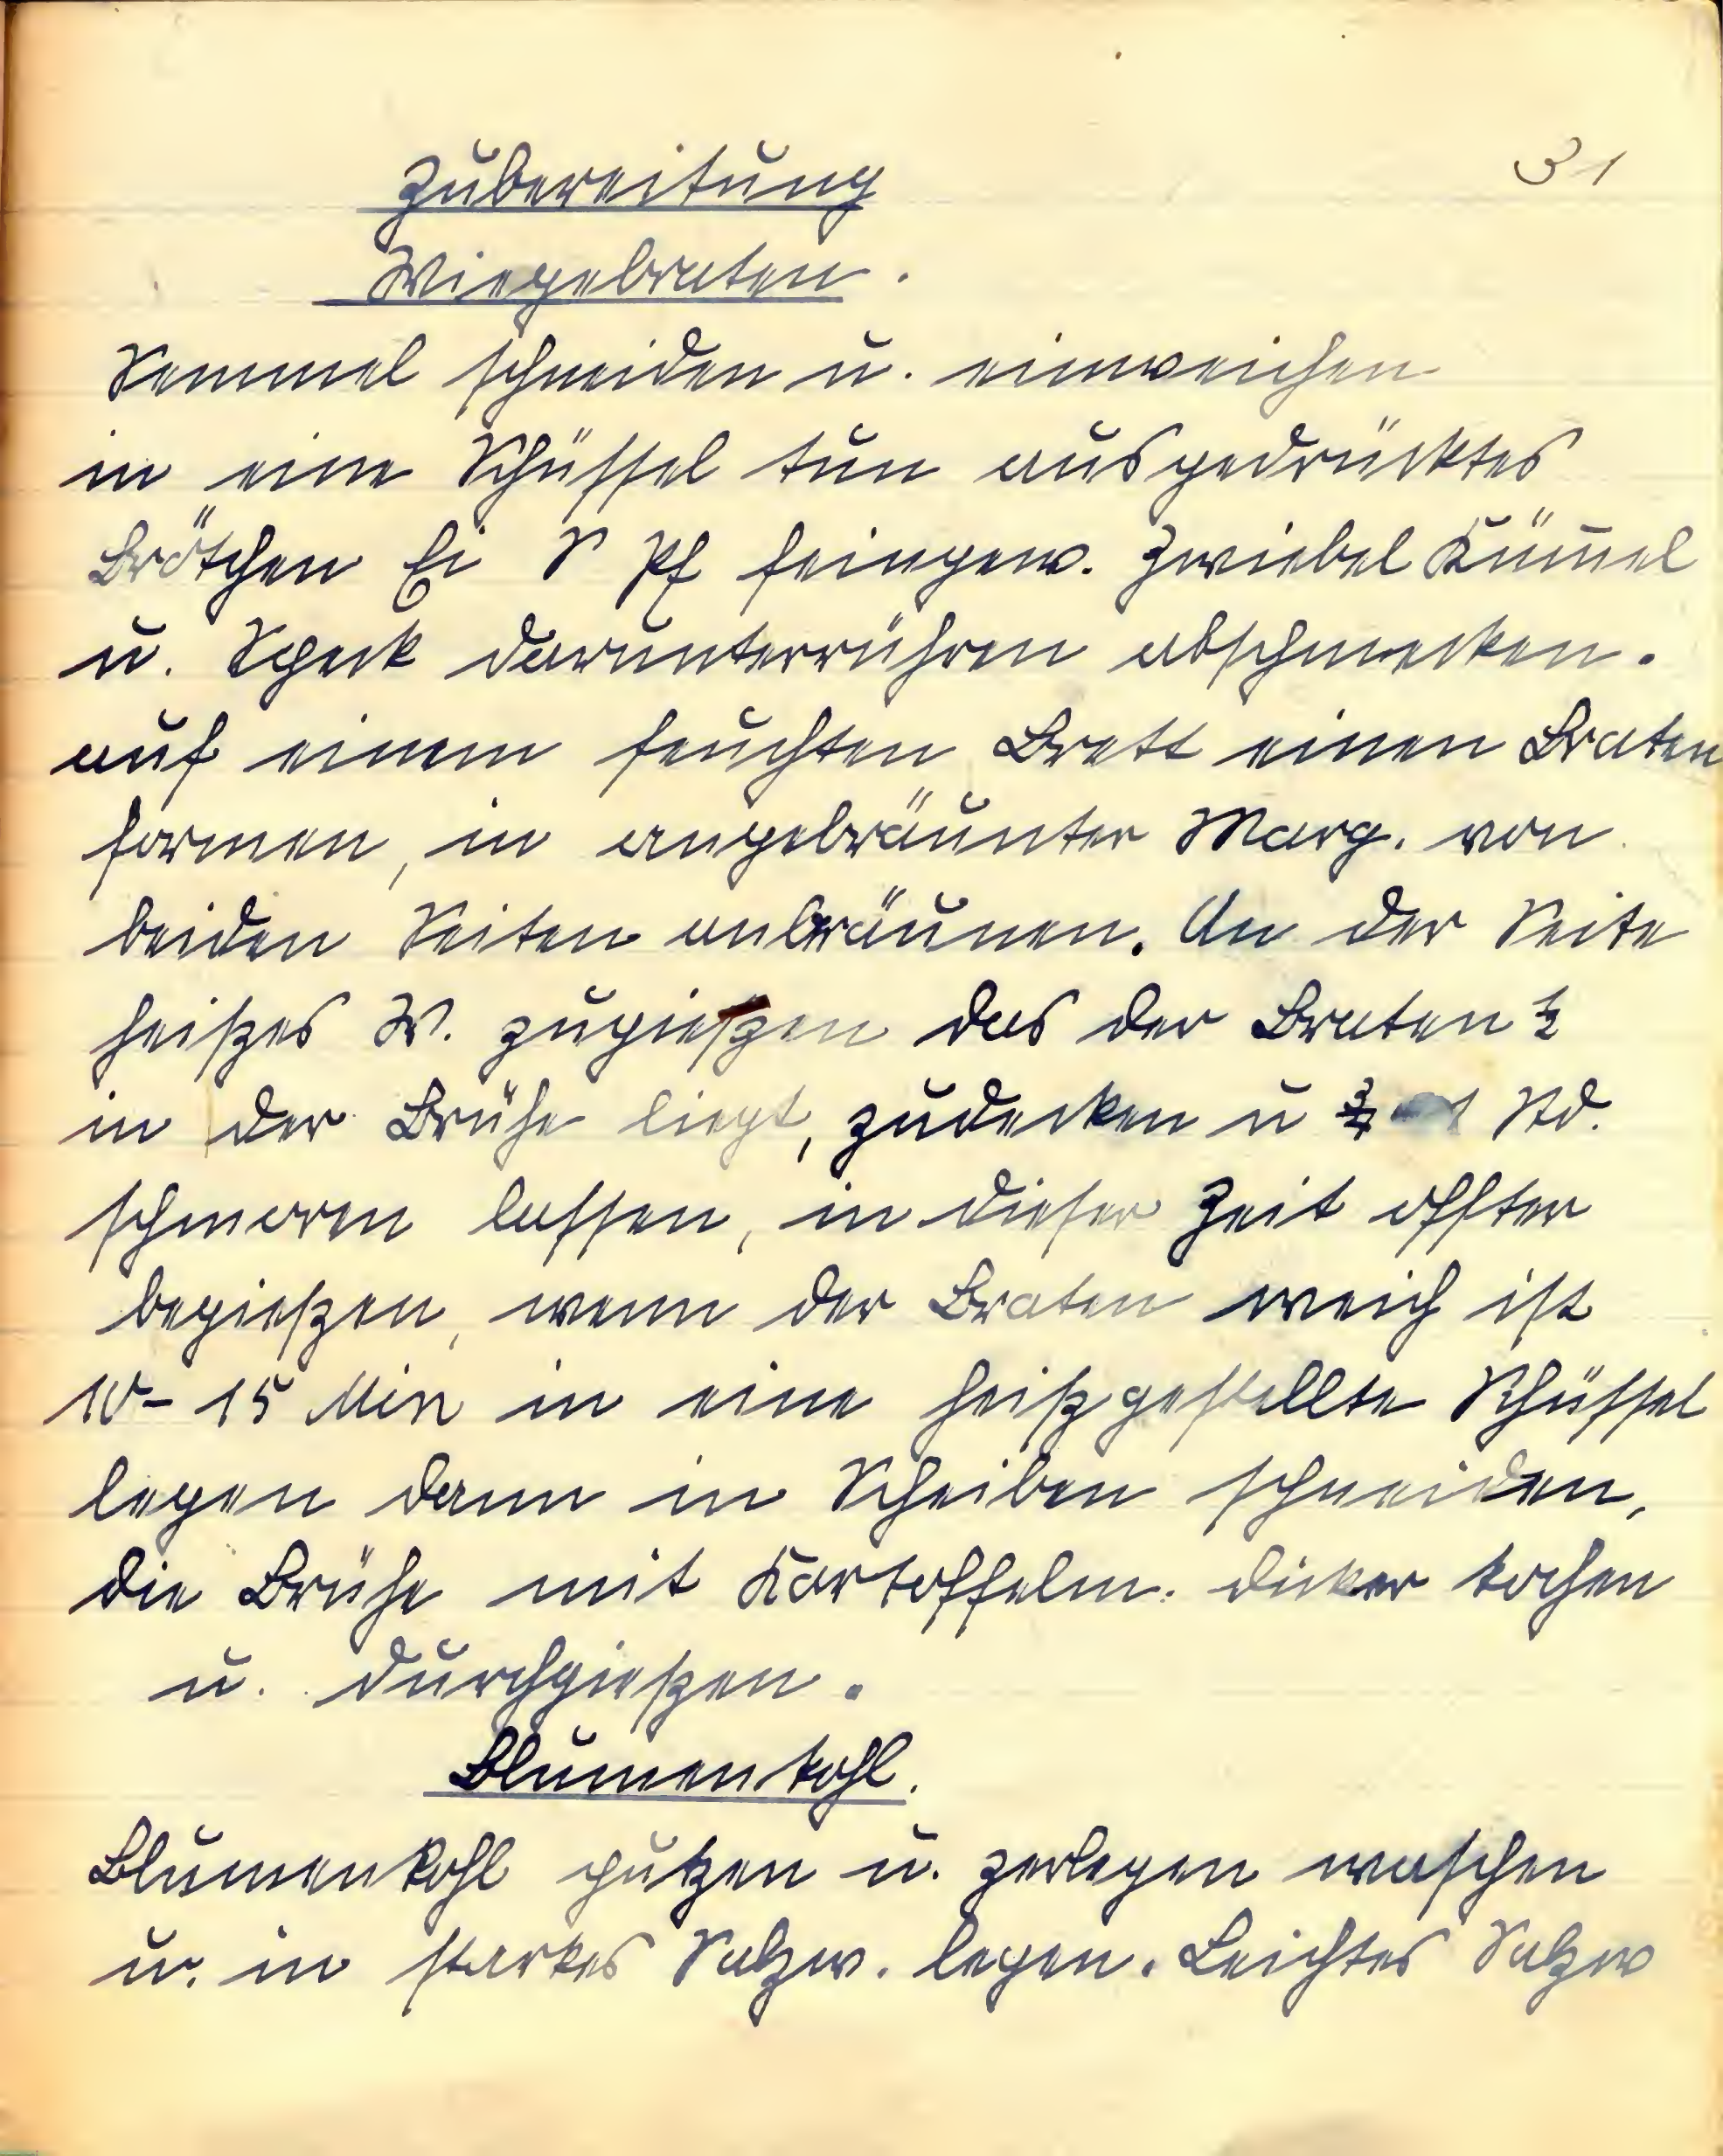 31
Zubereitung
Wiegebraten.
Semmel schneiden u. einweichen
in eine Schüssel tun ausgedrücktes
Brötchen Ei S Pf feingew. Zwiebel Küm̅el
u. Speck darunterrühren abschmecken.
auf einem feuchten Brett einen Braten
formen, in angebräunter Marg. von
beiden Seiten anbräunen. An der Seite
heißes W. zugießen das der Braten ½
in der Brühe liegt, zudecken u ¾ 1 Std.
schmoren lassen, in dieser Zeit offter
begießen, wenn der Braten weich ist
10-15 Min in eine heißgestellte Schüssel
legen dann in Scheiben schneiden,
die Brühe mit Kartoffelm. dicker kochen
u. durchgießen.
Blumenkohl.
Blumenkohl putzen u. zerlegen waschen
u. in starkes Salzw. legen. Leichtes Salzw